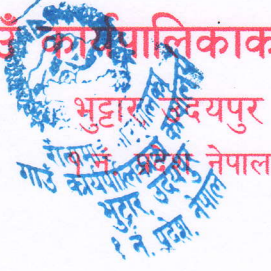 कार्यपालिकाक
भुट्टार, उदयपुर
१ नं. प्रदेश, नेपाल
गाउँ कार्यपालिका
भुट्टार, उदयपुर
१ नं. प्रदेश, नेपाल